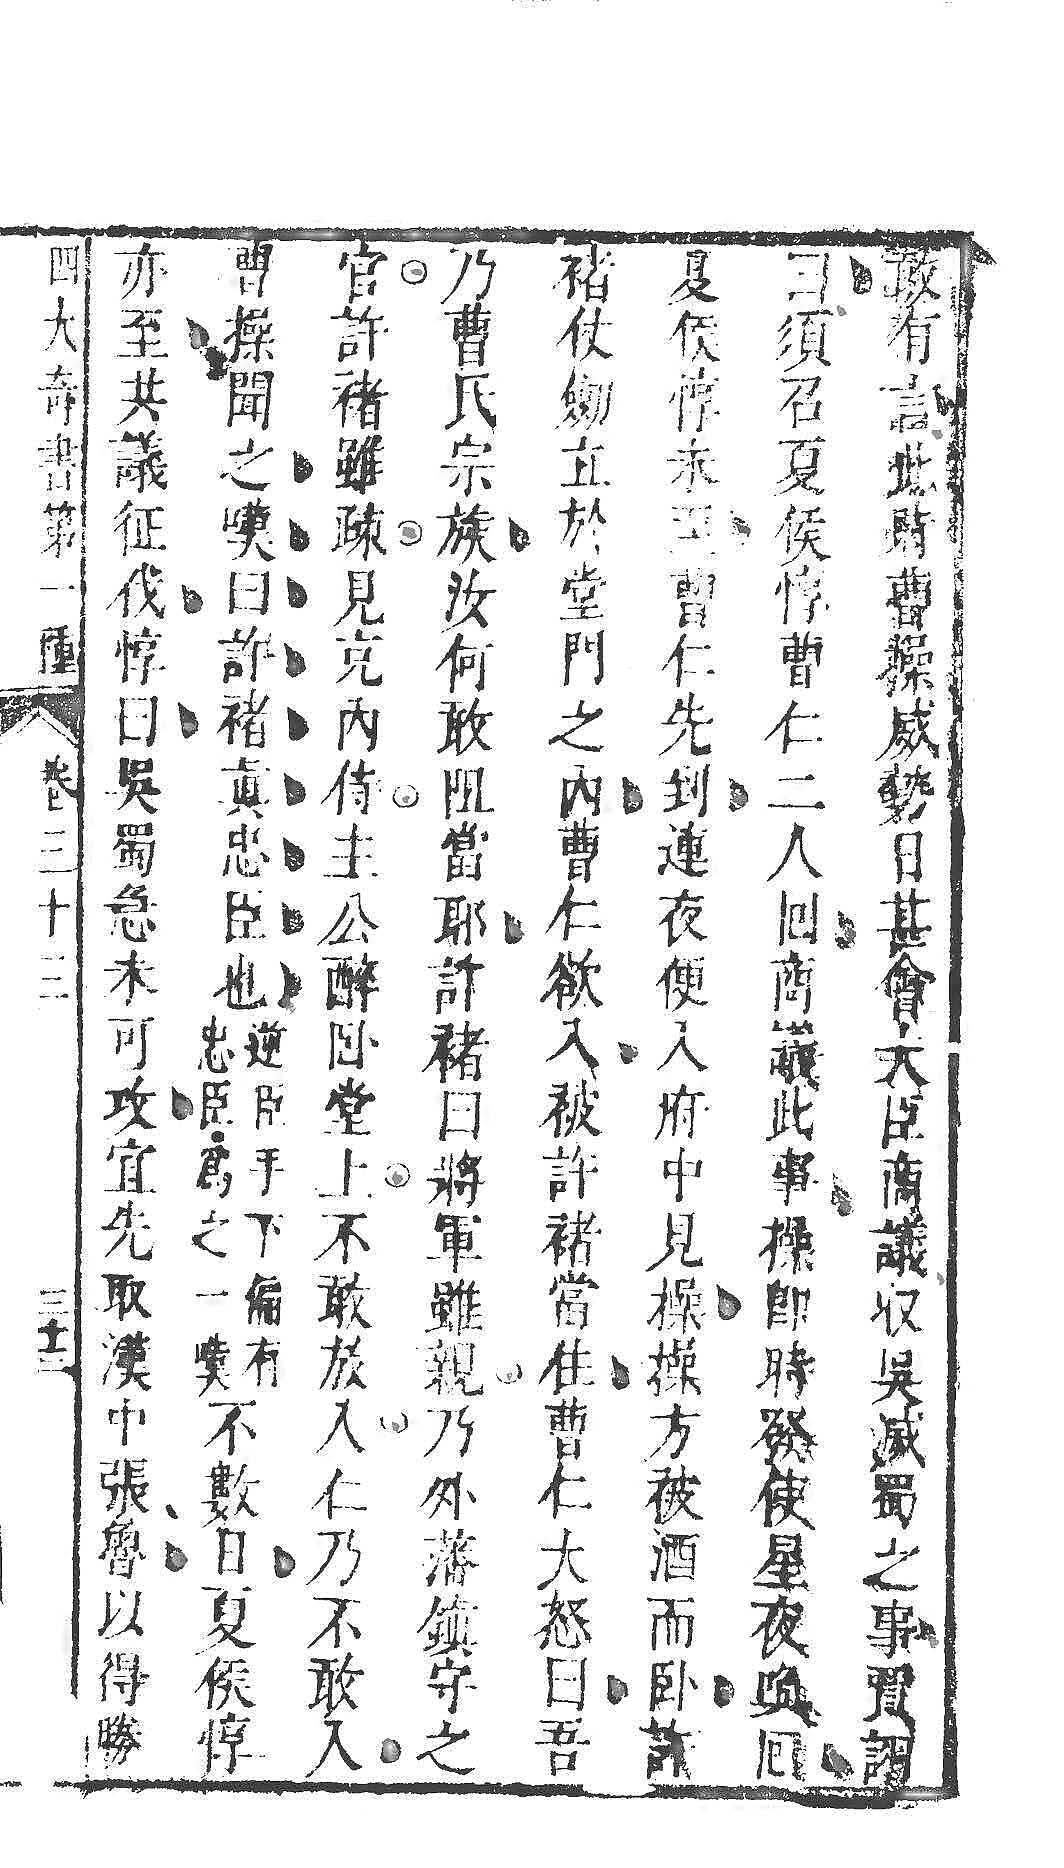 敢有言此時曹操威勢日甚會大臣商議收吳滅蜀之事賈詡
曰須召夏侯惇曹仁二人回商議此事操即時發使星夜喚回
夏侯惇未至曹仁先到連夜便入府中見操操方被酒而卧許
褚仗劒立於堂門之內曹仁欲入被許褚當住曹仁大怒曰吾
乃曹氏宗族汝何敢阻當耶許褚曰將軍雖親乃外藩鎮守之
官許褚雖疎見充內侍主公醉卧堂上不敢放入仁乃不敢入
曹操聞之嘆曰許褚真忠臣也逆臣手下偏有忠臣爲之一嘆不數日夏侯惇
亦至共議征伐惇曰吳蜀急未可攻宜先取漢中張魯以得勝
四大奇書第一種 卷三十三 三十二